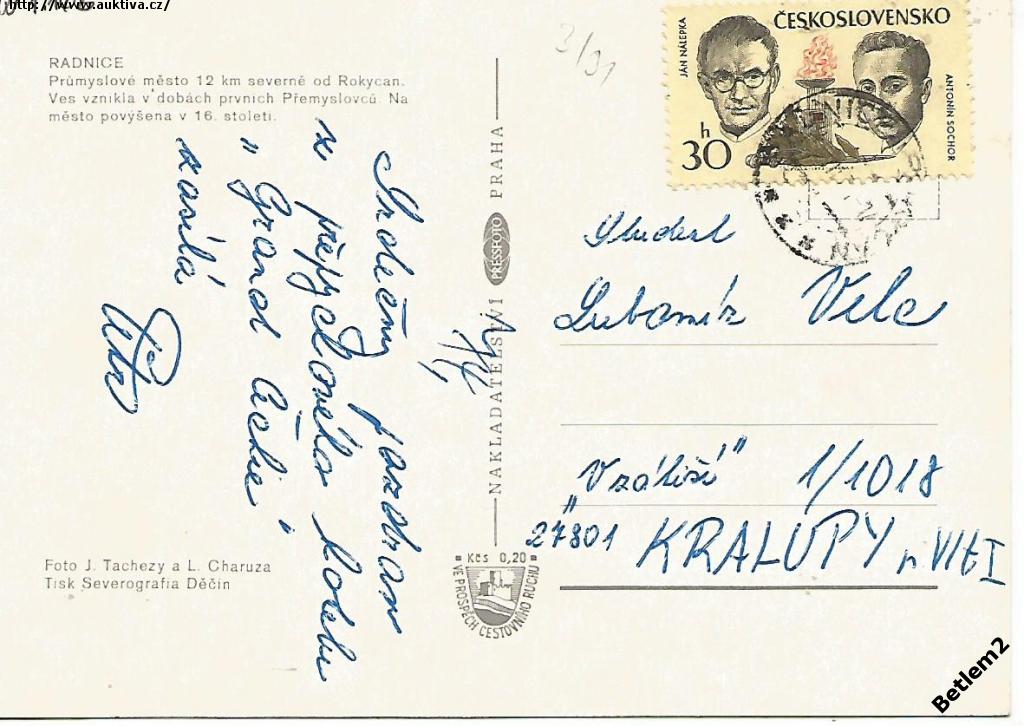 http://www.auktiva.cz/
RADNICE
Průmyslové město 12 km severně od Rokycan.
Ves vznikla v dobách prvních Přemyslovců. Na
město povýšena v 16. století.
Srdečný pozdrav
z přepychového hotelu
„Grand Áchić"
zasílá
Petr
Foto J. Tachezy a L. Charuza
Tisk Severografia Děčín
NAKLADATELSTVÍ PRESSFOTO PRAHA
Kčs 0,20
VE PROSPĚCH CESTOVNÍHO RUCHU
3/91
ČESKOSLOVENSKO
JÁN NÁLEPKA
ANTONÍN SOCHOR
30 h
Student
Lubomír Vele
„Vzátiší" 1/1018
27801 KRALUPY n. Vlt I
Betlem2